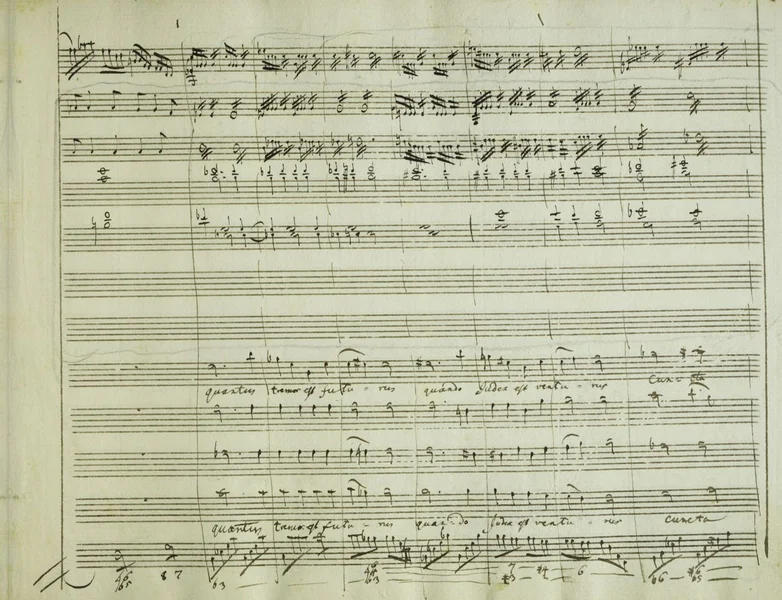 quantus tremor est futu - rus quando Judex est ventu - rus cuncta
quantus tremor est futu - rus quan - do Judex est ventu - rus cuncta
8 7
6 3
6